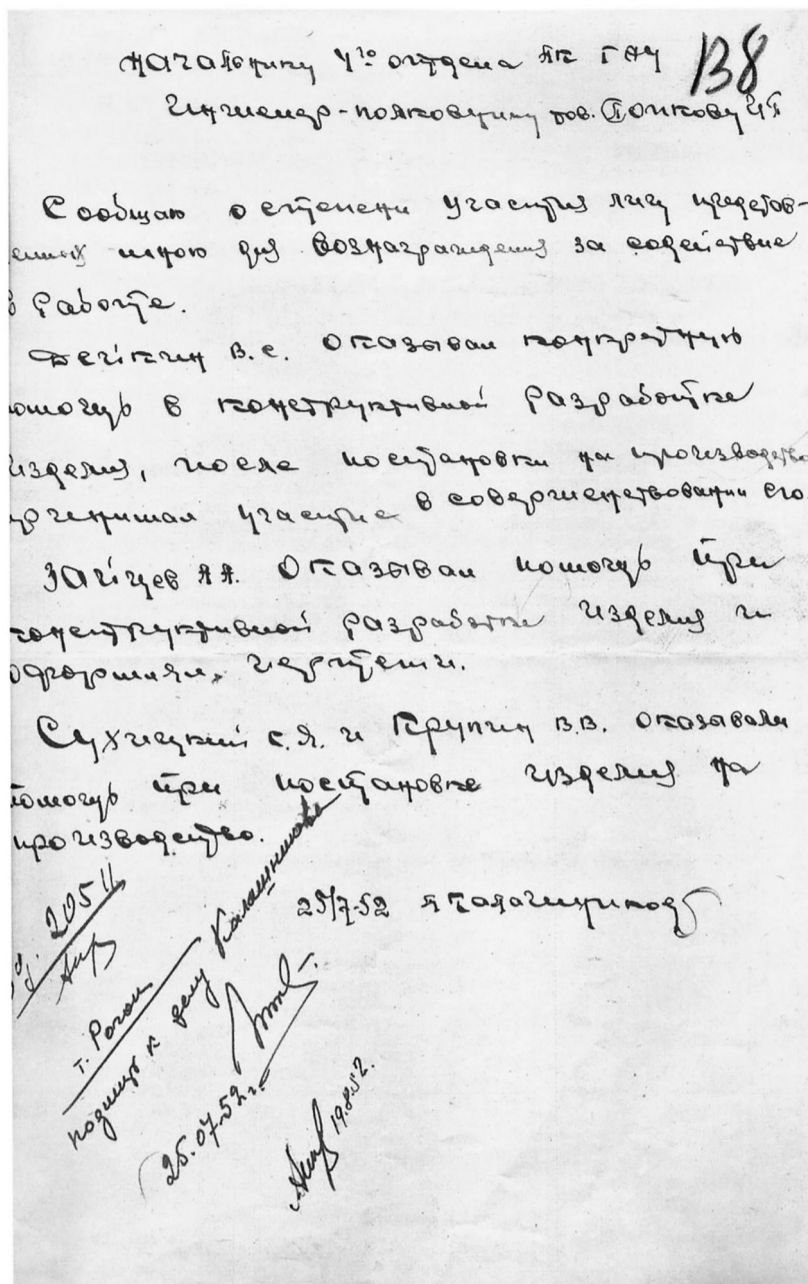 138
Начальнику 4го отдела АК ГАУ
Инженер-полковнику тов. Попкову
Сообщаю о степени участия лиц представ-
ленных мною для вознаграждения за содействие
в работе.
Дейкин В.С. оказывал конкретную
помощь в конструктивной разработке
изделия, после постановки на производство
принимал участие в совершенствовании его
Зайцев А.А. оказывал помощь при
конструктивной разработке изделия и
оформлял чертежи.
Сухицкий С.Я. и Крупин В.В. оказывали
помощь при постановке изделия на
производство.
25/7-52 Калашников
2051
т. Рогов
подшить к делу Калашникова
25.07.52 г.
19.8.52.